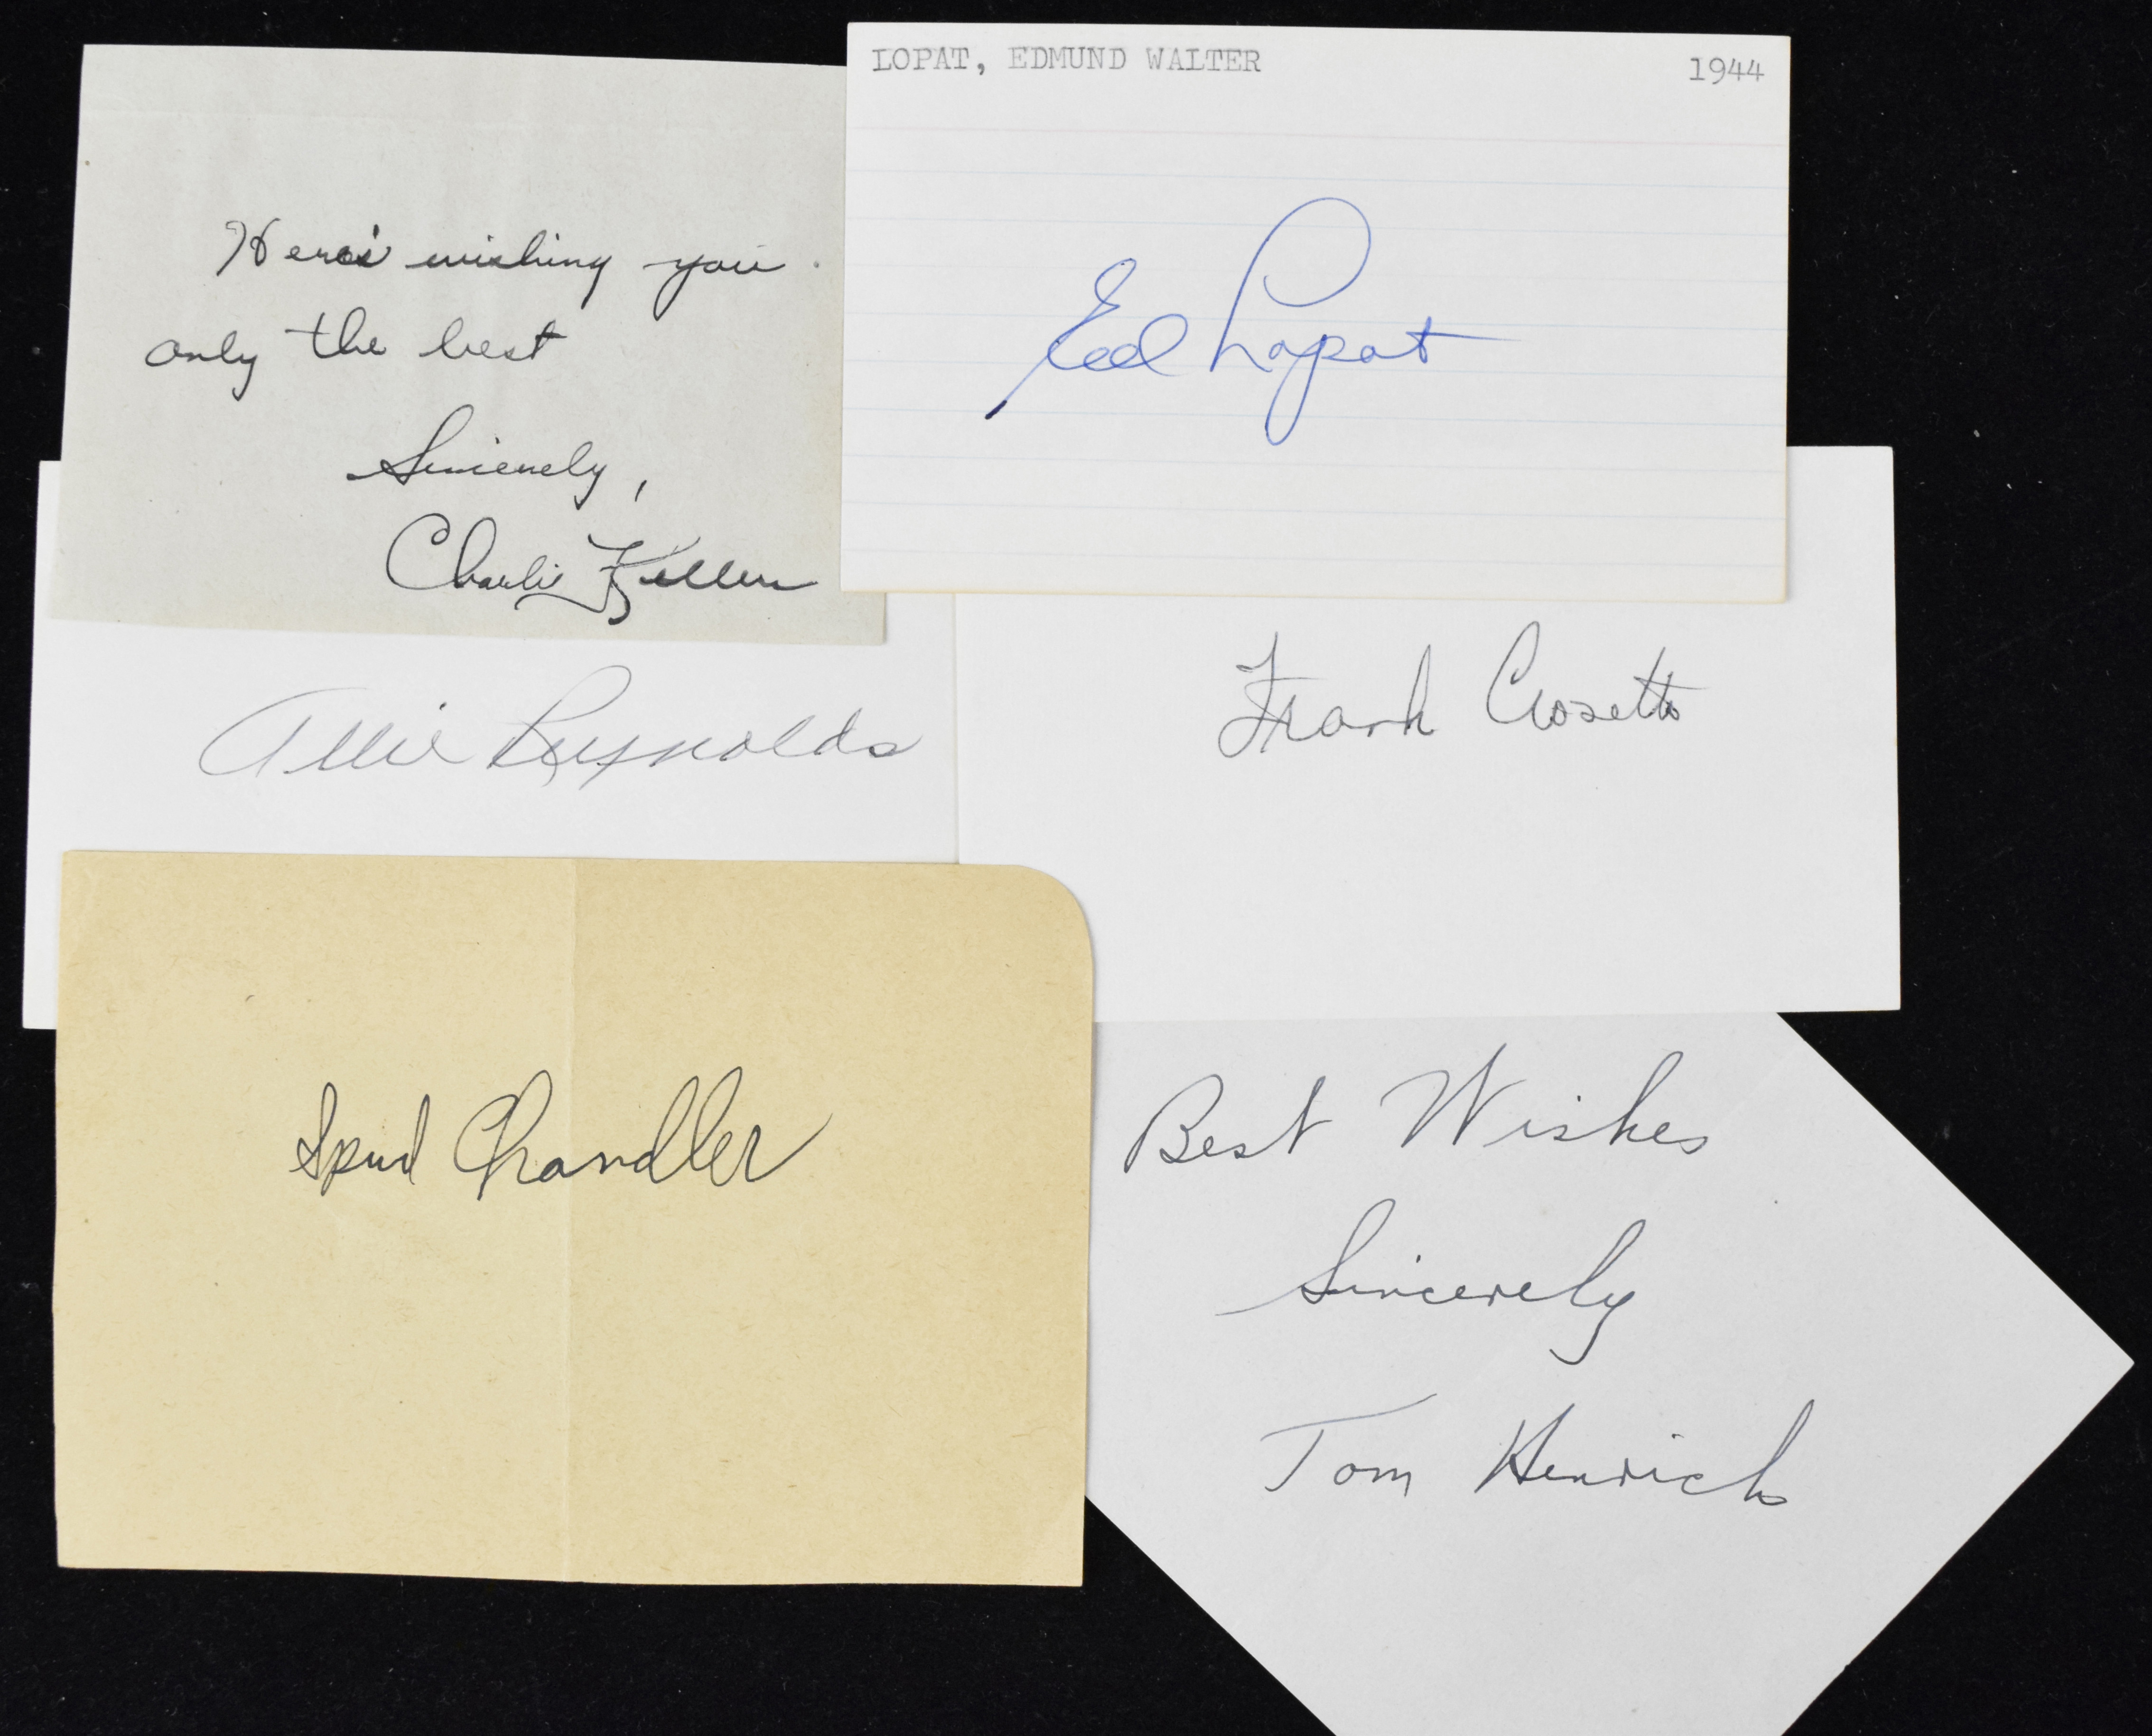 Here's wishing you
only the best
Sincerely,
Charlie Keller
LOPAT, EDMUND WALTER 1944
Ed Lopat
Allie Reynolds
Frank Crosetti
Spud Chandler
Best Wishes
Sincerely
Tom Henrich